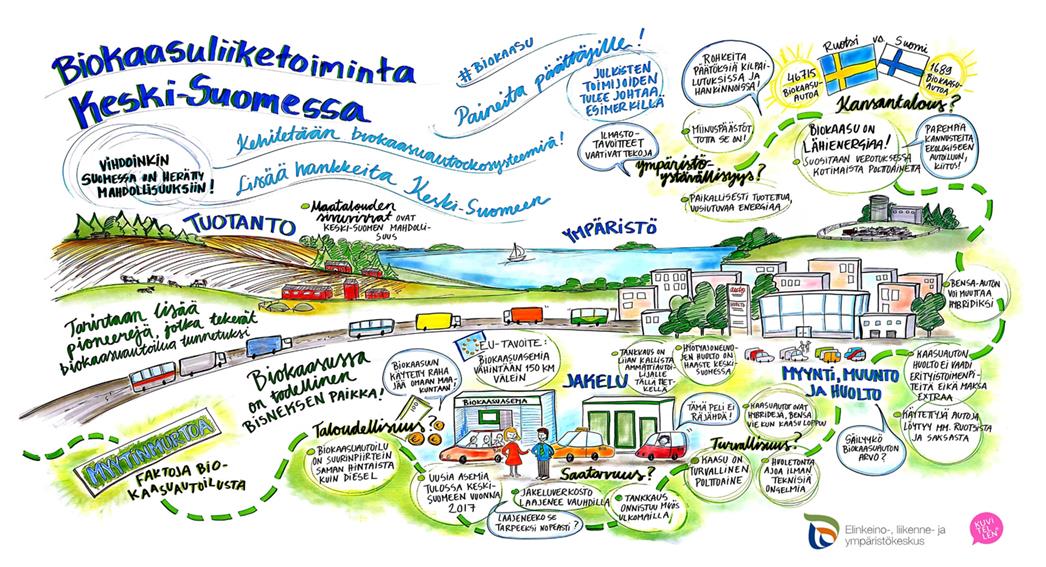 Biokaasuliiketoiminta
Keski-Suomessa
#BIOKAASU
Paineita päättäjille!
JULKISTEN
TOIMIJOIDEN
TULEE JOHTAA
ESIMERKILLÄ
ROHKEITA
PÄÄTÖKSIÄ KILPAI-
LUTUKSISSA JA
HANKINNOISSA!
Ruotsi vs. Suomi
46715
BIOKAASU-
AUTOA
1689
BIOKAASU-
AUTOA
Kansantalous?
VIHDOINKIN
SUOMESSA ON HERÄTTY
MAHDOLLISUUKSIIN!
Kehitetään biokaasuautoekosysteemiä!
Lisää hankkeita Keski-Suomeen
ILMASTO-
TAVOITTEET
VAATIVAT TEKOJA
MIINUSPÄÄSTÖT,
TOTTA SE ON!
Ympäristö-
ystävällisyys?
PAIKALLISESTI TUOTETTUA,
UUSIUTUVAA ENERGIAA!
BIOKAASU ON
LÄHIENERGIAA!
SUOSITAAN VEROTUKSESSA
KOTIMAISTA POLTTOAINETTA
PAREMPIA
KANNUSTEITA
EKOLOGISEEN
AUTOILUUN,
KIITOS!
TUOTANTO
Maatalouden
sivuvirrat OVAT
KESKI-SUOMEN MAHDOLLI-
SUUS
YMPÄRISTÖ
Tarvitaan lisää
pioneerejä, jotka tekevät
biokaasuautoilua tunnetuksi
Biokaasussa
on todellinen
bisneksen paikka!
BIOKAASUUN
KÄYTETTY RAHA
JÄÄ OMAAN MAA-
KUNTAAN!
EU-TAVOITE:
BIOKAASUASEMIA
VÄHINTÄÄN 150 KM
VÄLEIN
JAKELU
TANKKAUS ON
LIIAN KALLISTA
AMMATTIAUTOI-
LIJALLE
TÄLLÄ HET-
KELLÄ
HYÖTYAJONEUVO-
JEN HUOLTO ON
HAASTE KESKI-
SUOMESSA
auto
HUOLTO
MYYNTI, MUUNTO
JA HUOLTO
BENSA-AUTON
VOI MUUTTAA
HYBRIDIKSI
KAASUAUTON
HUOLTO EI VAADI
ERITYISTOIMENPI-
TEITÄ EIKÄ MAKSA
EXTRAA
KÄYTETTYJÄ AUTOJA
LÖYTYY MM. RUOTSISTA
JA SAKSASTA
SÄILYYKÖ
BIOKAASUAUTON
ARVO?
MYYTINMURTOA
FAKTOJA BIO-
KAASUAUTOILUSTA
Taloudellisuus?
BIOKAASUAUTOILU
ON SUURINPIIRTEIN
SAMAN HINTAISTA
KUIN DIESEL
BIOKAASUASEMA
UUSIA ASEMIA
TULOSSA KESKI-
SUOMEEN VUONNA
2017
Saatavuus?
JAKELUVERKOSTO
LAAJENEE VAUHDILLA
LAAJENEEKO SE
TARPEEKSI NOPEASTI?
TANKKAUS
ONNISTUU MYÖS
ULKOMAILLA
TÄMÄ PELI EI
RÄJÄHDÄ!
KAASUAUTOT OVAT
HYBRIDEJÄ, BENSA
VIE KUN KAASU LOPPUU
Turvallisuus?
KAASU ON
TURVALLINEN
POLTTOAINE
HUOLETONTA
AJOA ILMAN
TEKNISIÄ
ONGELMIA
Elinkeino-, liikenne- ja
ympäristökeskus
KUVI
TEL
LEN